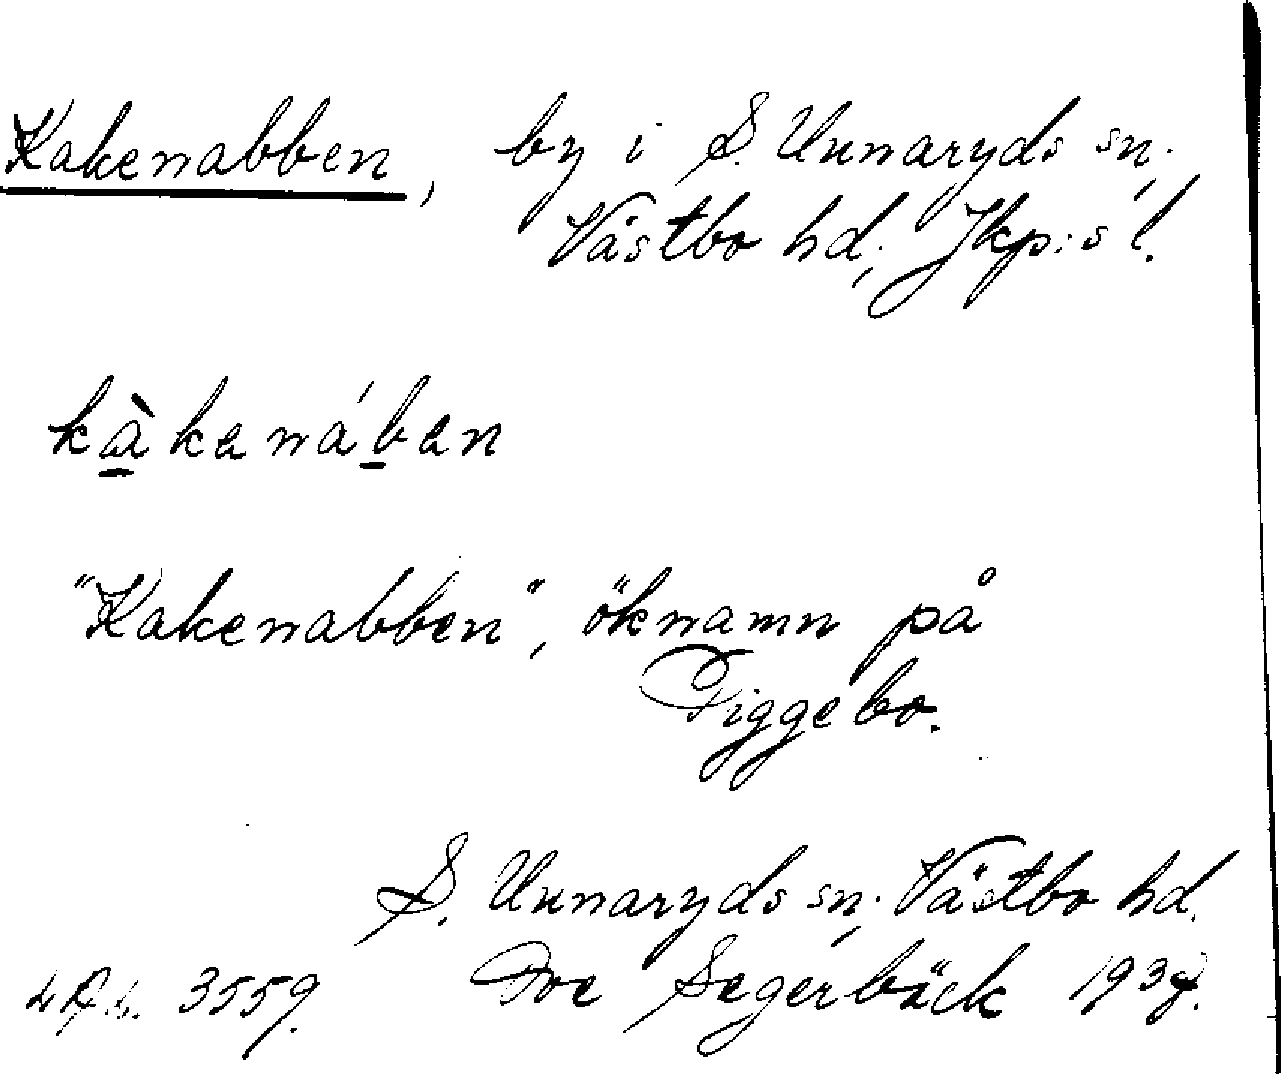 Kakenabben, by i S. Unnaryds sn;
Västbo hd; Jkp:s l.
kàkanában
"Kakenabben", öknamn på
Tiggebo.
S. Unnaryds sn; Västbo hd.
3559. Segerbäck